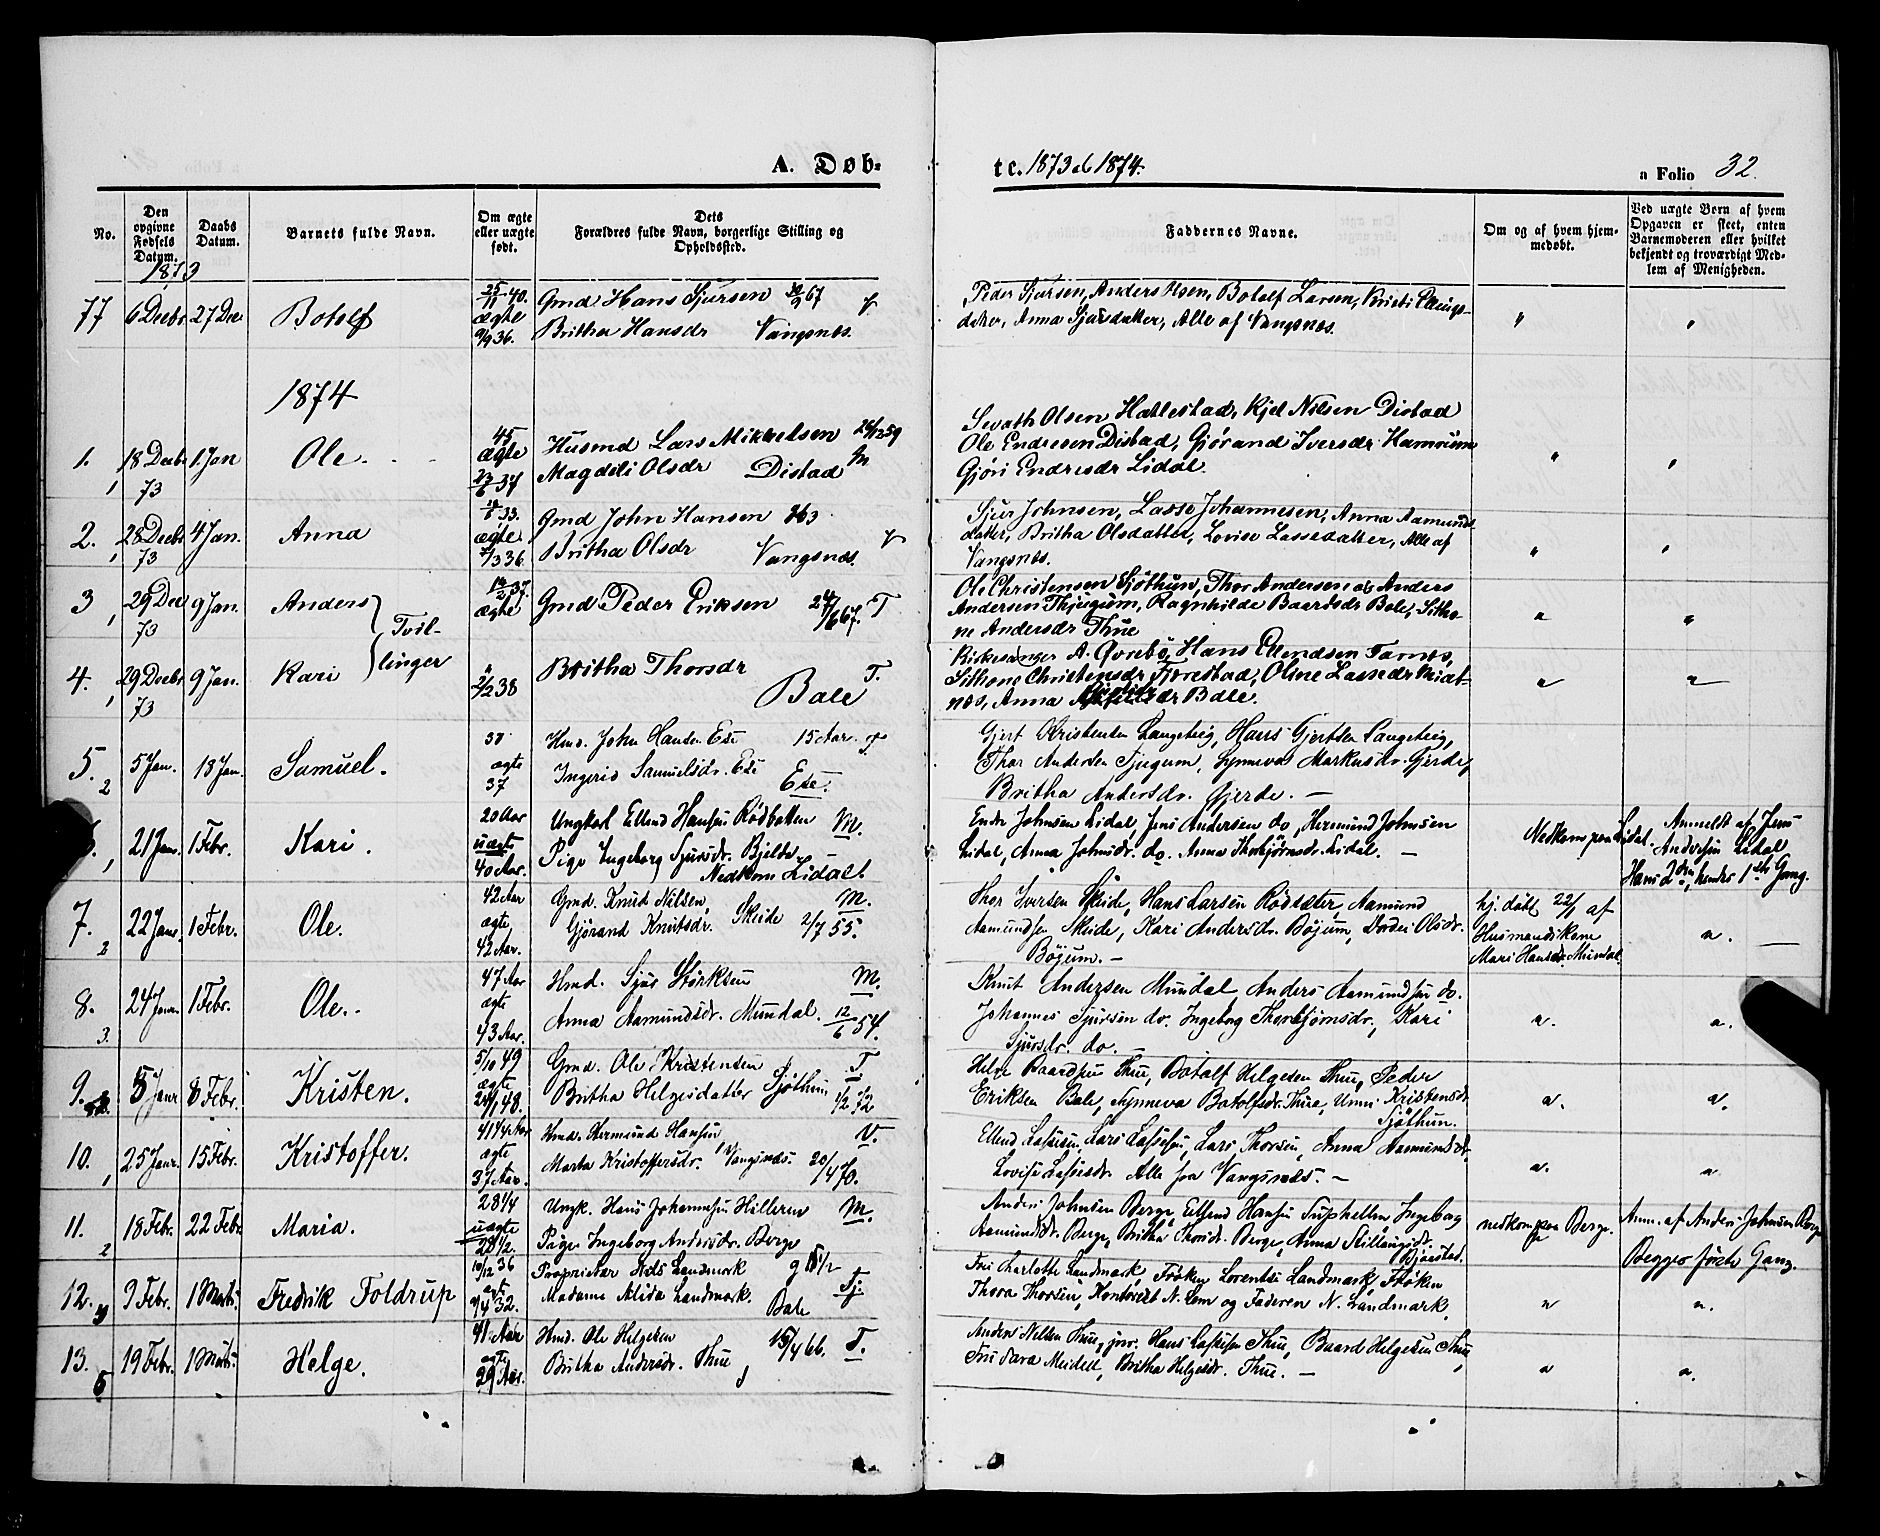 A. Døb-
tc. 1873 & 1874.
a Folio 32.
No.
Den opgivne Fødsels Datum.
Daabs Datum.
Barnets fulde Navn.
Om ægte eller uægte født.
Dets Forældres fulde Navn, borgerlige Stilling og Opholdssted.
Faddernes Navne.
Om og af hvem hjemmedøbt.
Ved uægte Børn af hvem Opgaven er skeet, enten Barnemoderen eller hvilket bekjendt og troværdigt Medlem af Menigheden.
1873
77 6 Decbr 27 Dec Botolf ægte Gmd Hans Sjursen V
9/9 36. Britha Hansdr Vangsnæs.
Peder Sjursen, Anders Olsen, Botolf Larsen, Kristi Ellings-
datter, Anna Sjursdatter, Alle af Vangsnæs.
1874
1. 18 Decbr 73 1 Jan Ole. 45 ægte Husmd Lars Mikkelsen M
37 Magdeli Olsdr Distad
Sevath Olsen Hatlestad, Kjel Nilsen Distad
Ole Endresen Distad, Gjørand Iversdr Hamrum
Gjøri Endresdr Lidal.
2. 28 Decbr 73 4 Jan. Anna 33. ægte Gmd John Hansen 63 V
36 Britha Olsdr Vangsnæs.
Sjur Johnsen, Lasse Johannesen, Anna Aamunds-
datter, Britha Olsdatter, Lovise Lassedatter, Alle af
Vangsnæs.
3 29 Dec 73 9 Jan. Anders Tvil- ægte Gmd Peder Eriksen 24/6 67. T
Ole Christensen Sjøthun, Thor Andersen og Anders
Andersen Thjugum, Ragnhilde Baardsdr Bale, Sitha-
ne Andersdr Thue
4. 29 Decbr 73 9 Jan. Kari linger 2/2 38 Britha Thorsdr Bale T.
Kirkesanger A. Øvrebø, Hans Ellendsen Farnes,
Sithane Christensdr Fjørestad, Oline Lassedr Kvist-
næs, Anna Bale.
5. 2 5 Jan. 18 Jan. Samuel. 38 ægte Hmd. John Hansen Ese 15 Aar. T
37 Ingerid Samuelsdr. Ese Ese.
Gjert Kristensen Langeteig, Hans Gjertsen Langeteig,
Thor Andersen Tjugum, Synneva Markusdr. Gjerde,
Britha Andersdr. Gjerde. —
6. 21 Jan. 1 Febr. Kari. 20 Aar uægte Ungkarl Ellend Hansen Rødbotten M.
40 Aar. Pige Ingeborg Sjursdr. Bjelde
Nedkom Lidal
Endre Johnsen Lidal, Jens Andersen do, Hermund Johnsen
Lidal, Anna Johnsdr. do. Anna Thorbjørnsdr. Lidal. —
Nedkom paa Lidal.
Anmeldt af Jens
Andersen Lidal
Hans 2den, hendes 1ste Gang.
7. 2 22 Janr. 1 Febr. Ole. 42 Aar ægte Gmd. Knud Nilsen, M.
42 Aar. Gjørand Knutsdr. Skeide 2/7 55.
Thor Iversen Skeide, Hans Larsen Rødseter, Aamund
Aamundsen Skeide, Kari Andersdr. Bøjum, Dordei Olsdr.
Bøjum. —
hj. døbt 22/1 af
Husmandskone
Mari Hansdr. Mundal.
8. 3. 24 Janr. 1 Febr. Ole. 47 Aar ægte Hmd. Sjur Størksen M.
43 Aar. Anna Aamundsdr. Mundal. 12/6 54.
Knut Andersen Mundal, Anders Aamundsen do.
Johannes Sjursen do. Ingeborg Thorbjørnsdr., Kari
Sjursdr. do. —
9. 5 Janr 8 Febr. Kristen. 5/10 49 ægte Gmd. Ole Kristensen T
24/1 48. Britha Helgesdatter Sjøthun 1/2 72
Helge Baardsen Thue, Botolf Helgesen Thue, Peder
Eriksen Bale, Synneva Botolfsdr. Thue, Unni Kristensdr.
Sjøthun.
10. 25 Janr. 15 Febr. Kristoffer. 41 1/4 Aar ægte Hmd. Hermund Hansen V.
37 Aar. Marta Kristoffersdr. Vangsnæs. 20/4 70.
Ellend Lassesen, Lars Lassesen, Lars Thorsen, Anna Aamundsdr.,
Lovise Lassesdr. Alle fra Vangsnæs. —
11. 2 18 Febr. 22 Febr. Maria. 28 1/4 uægte Ungk. Hans Johannesen Hilleren M.
28 1/2. Pige Ingeborg Andersdr. Berge
Anders Johnsen Berge, Ellend Hansen Suphellen, Ingeborg
Aamundsdr. Berge, Britha Thorsdr. Berge, Anna Stillaugsdr.
Bjåstad.
nedkom paa Berge.
Anm. af Anders Johnsen Berge
Begges første Gang.
12. 9 Febr. 1 Marts Fredrik Foldrup 10/12 36 ægt. Proprietær Nils Landmark Tj.
9/4 32. Madame Alida Landmark. Bale
Fru Charlotte Landmark, Frøken Lorentse Landmark, Frøken
Thora Thorsen, Kontorist N. Lem og Faderen N. Landmark.
13. 5 19 Febr. 1 Marts Helge. 41 Aar ægte Hmd. Ole Helgesen 15/4 66. T.
29 Aar. Britha Andersdr. Thue
Anders Nelsen Thue, jnr. Hans Lassesen Thue, Baard Helgesen Thue,
Fru Sara Meidell, Britha Helgesdr. Thue. —